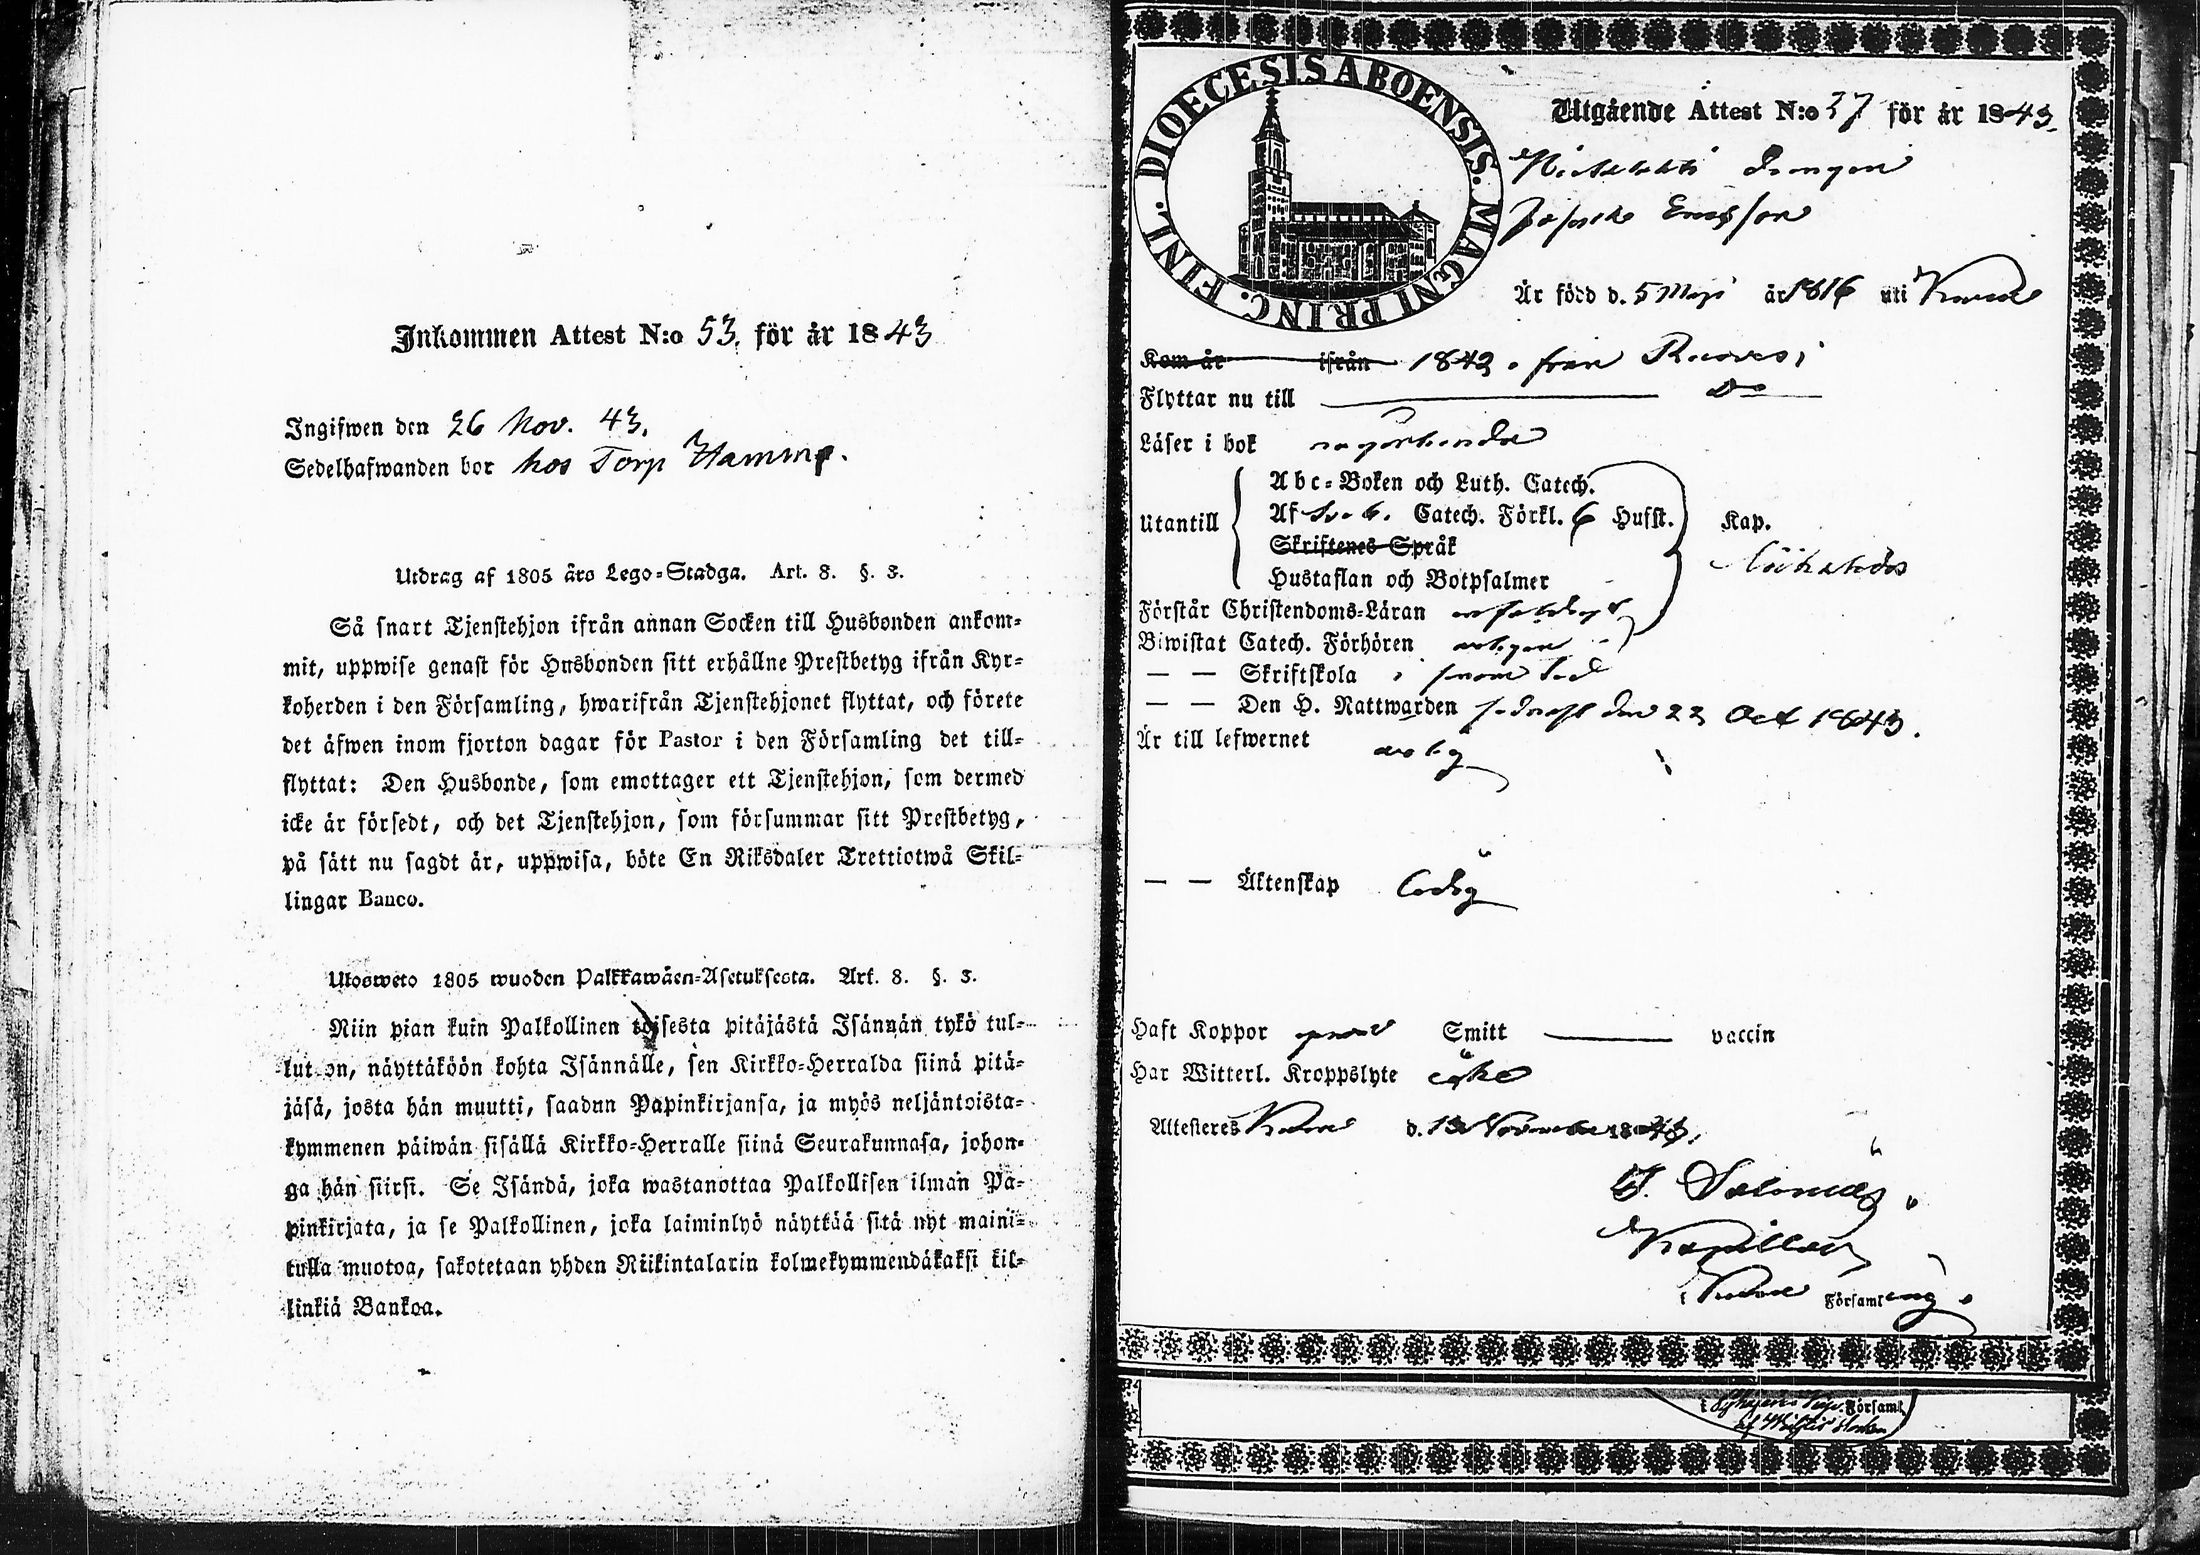 Inkommen Attest N:o 53. för år 1843
Ingifwen den 26 Nov. 43.
Sedelhafwanden bor hos Torp Hammp.
Utdrag af 1805 års Lego-Stadga. Art. 8. §. 3.
Så snart Tjenstehjon ifrån annan Socken till Husbonden ankom-
mit, uppwise genast för Husbonden sitt erhållne Prestbetyg ifrån Kyr-
koherden i den Församling, hwarifrån Tjenstehjonet flyttat, och förete
det äfwen inom fjorton dagar för Pastor i den Församling det till-
flyttat: Den Husbonde, som emottager ett Tjenstehjon, som dermed
icke är försedt, och det Tjenstehjon, som försummar sitt Prestbetyg,
på sätt nu sagdt är, uppwisa, böte En Riksdaler Trettiotwå Skil-
lingar Banco.
Ulosweto 1805 wuoden Palkkawäen-Asetuksesta. Art. 8. §. 3.
Niin pian kuin Palkollinen toisesta pitäjästä Isännän tykö tul-
lut on, näyttäköön kohta Isännälle, sen Kirkko-Herralda siinä pitä-
jäsä, josta hän muutti, saadun Papinkirjansa, ja myös neljäntoista-
kymmenen päiwän sisällä Kirkko-Herralle siinä Seurakunnasa, johon-
ga hän siirsi. Se Isändä, joka wastanottaa Palkollisen ilman Pa-
pinkirjata, ja se Palkollinen, joka laiminlyö näyttää sitä nyt maini-
tulla muotoa, sakotetaan yhden Riikintalarin kolmekymmendäkaksi kil-
linkiä Bankoa.
DIOECESIS ABOENSIS. MAGNI PRINC. FINL.
Utgående Attest N:o 37 för år 1843.
Drengen
Är född d. 5 Maji år 1816 uti
Kom år ifrån 1842 från Ruovesi
Flyttar nu till Do
Läser i bok
Utantill
Abc-Boken och Luth. Catech.
Af Sv. b. Catech. Förkl. 6 Husst. Kap.
Skriftenes Språk
Hustaflan och Botpsalmer
Förstår Christendoms-Läran
Biwistat Catech. Förhören
— — Skriftskola
— — Den H. Nattwarden sednast den 22 Oct 1843.
Är till lefwernet
— — Äktenskap ledig
Haft Koppor Smitt vaccin
Har Witterl. Kroppslyte icke
Attesteres d. 13 November 1843.
Kapellan
i Församling.
Församl